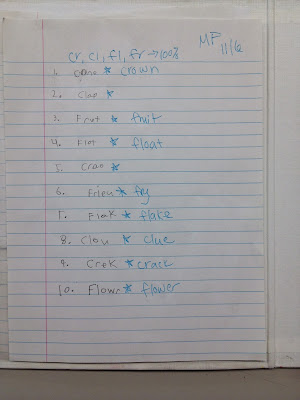 MP
11/6
cr, cl, fl, fr → 100%
1. * crown
2. Clap *
3. Frut * fruit
4. Flot * float
5. *
6. * fry
7. Flak * flake
8. Clou * clue
9. Crek *
10. Flowr * flower